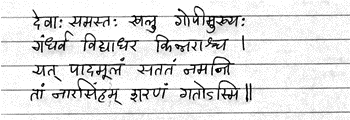 देवाः समस्तः खलु गोपीमुख्यः
गंधर्व विद्याधर किन्नराश्च ।
यत् पादमूलं सततं नमन्ति
तां नारसिंहम् शरणं गतोऽस्मि ॥